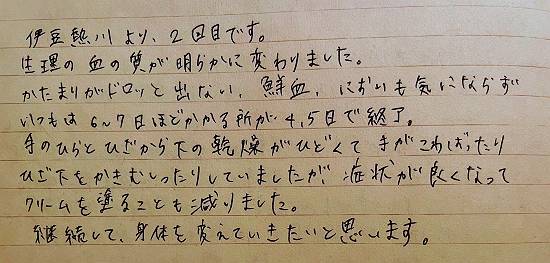 伊豆熱川より、2回目です。
生理の血の質が明らかに変わりました。
かたまりがドロッと出ない、鮮血、においも気にならず
いつもは6~7日ほどかかる所が4,5日で終了。
手のひらとひざから下の乾燥がひどくて手がこわばったり
ひざ下をかきむしったりしていましたが、症状が良くなって
クリームを塗ることも減りました。
継続して、身体を変えていきたいと思います。